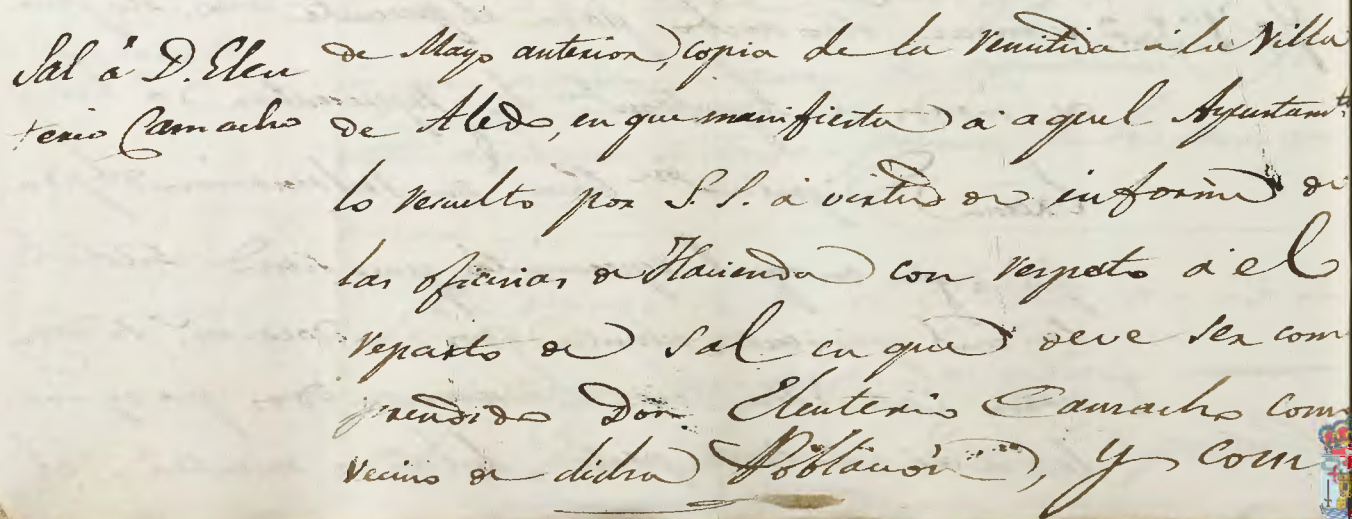 Sal á D. Eleu
terio Camacho
de Mayo anterior, copia de la remitida á la Villa
de Aledo, en que manifiesta á aquel Ayuntam.to
lo resuelto por S. S. á virtud de informe de
las oficinas de Hacienda con respeto á el
reparto de Sal en que deve ser com
prendido Don Eleuterio Camacho como
vecino de dicha Poblacion, y com